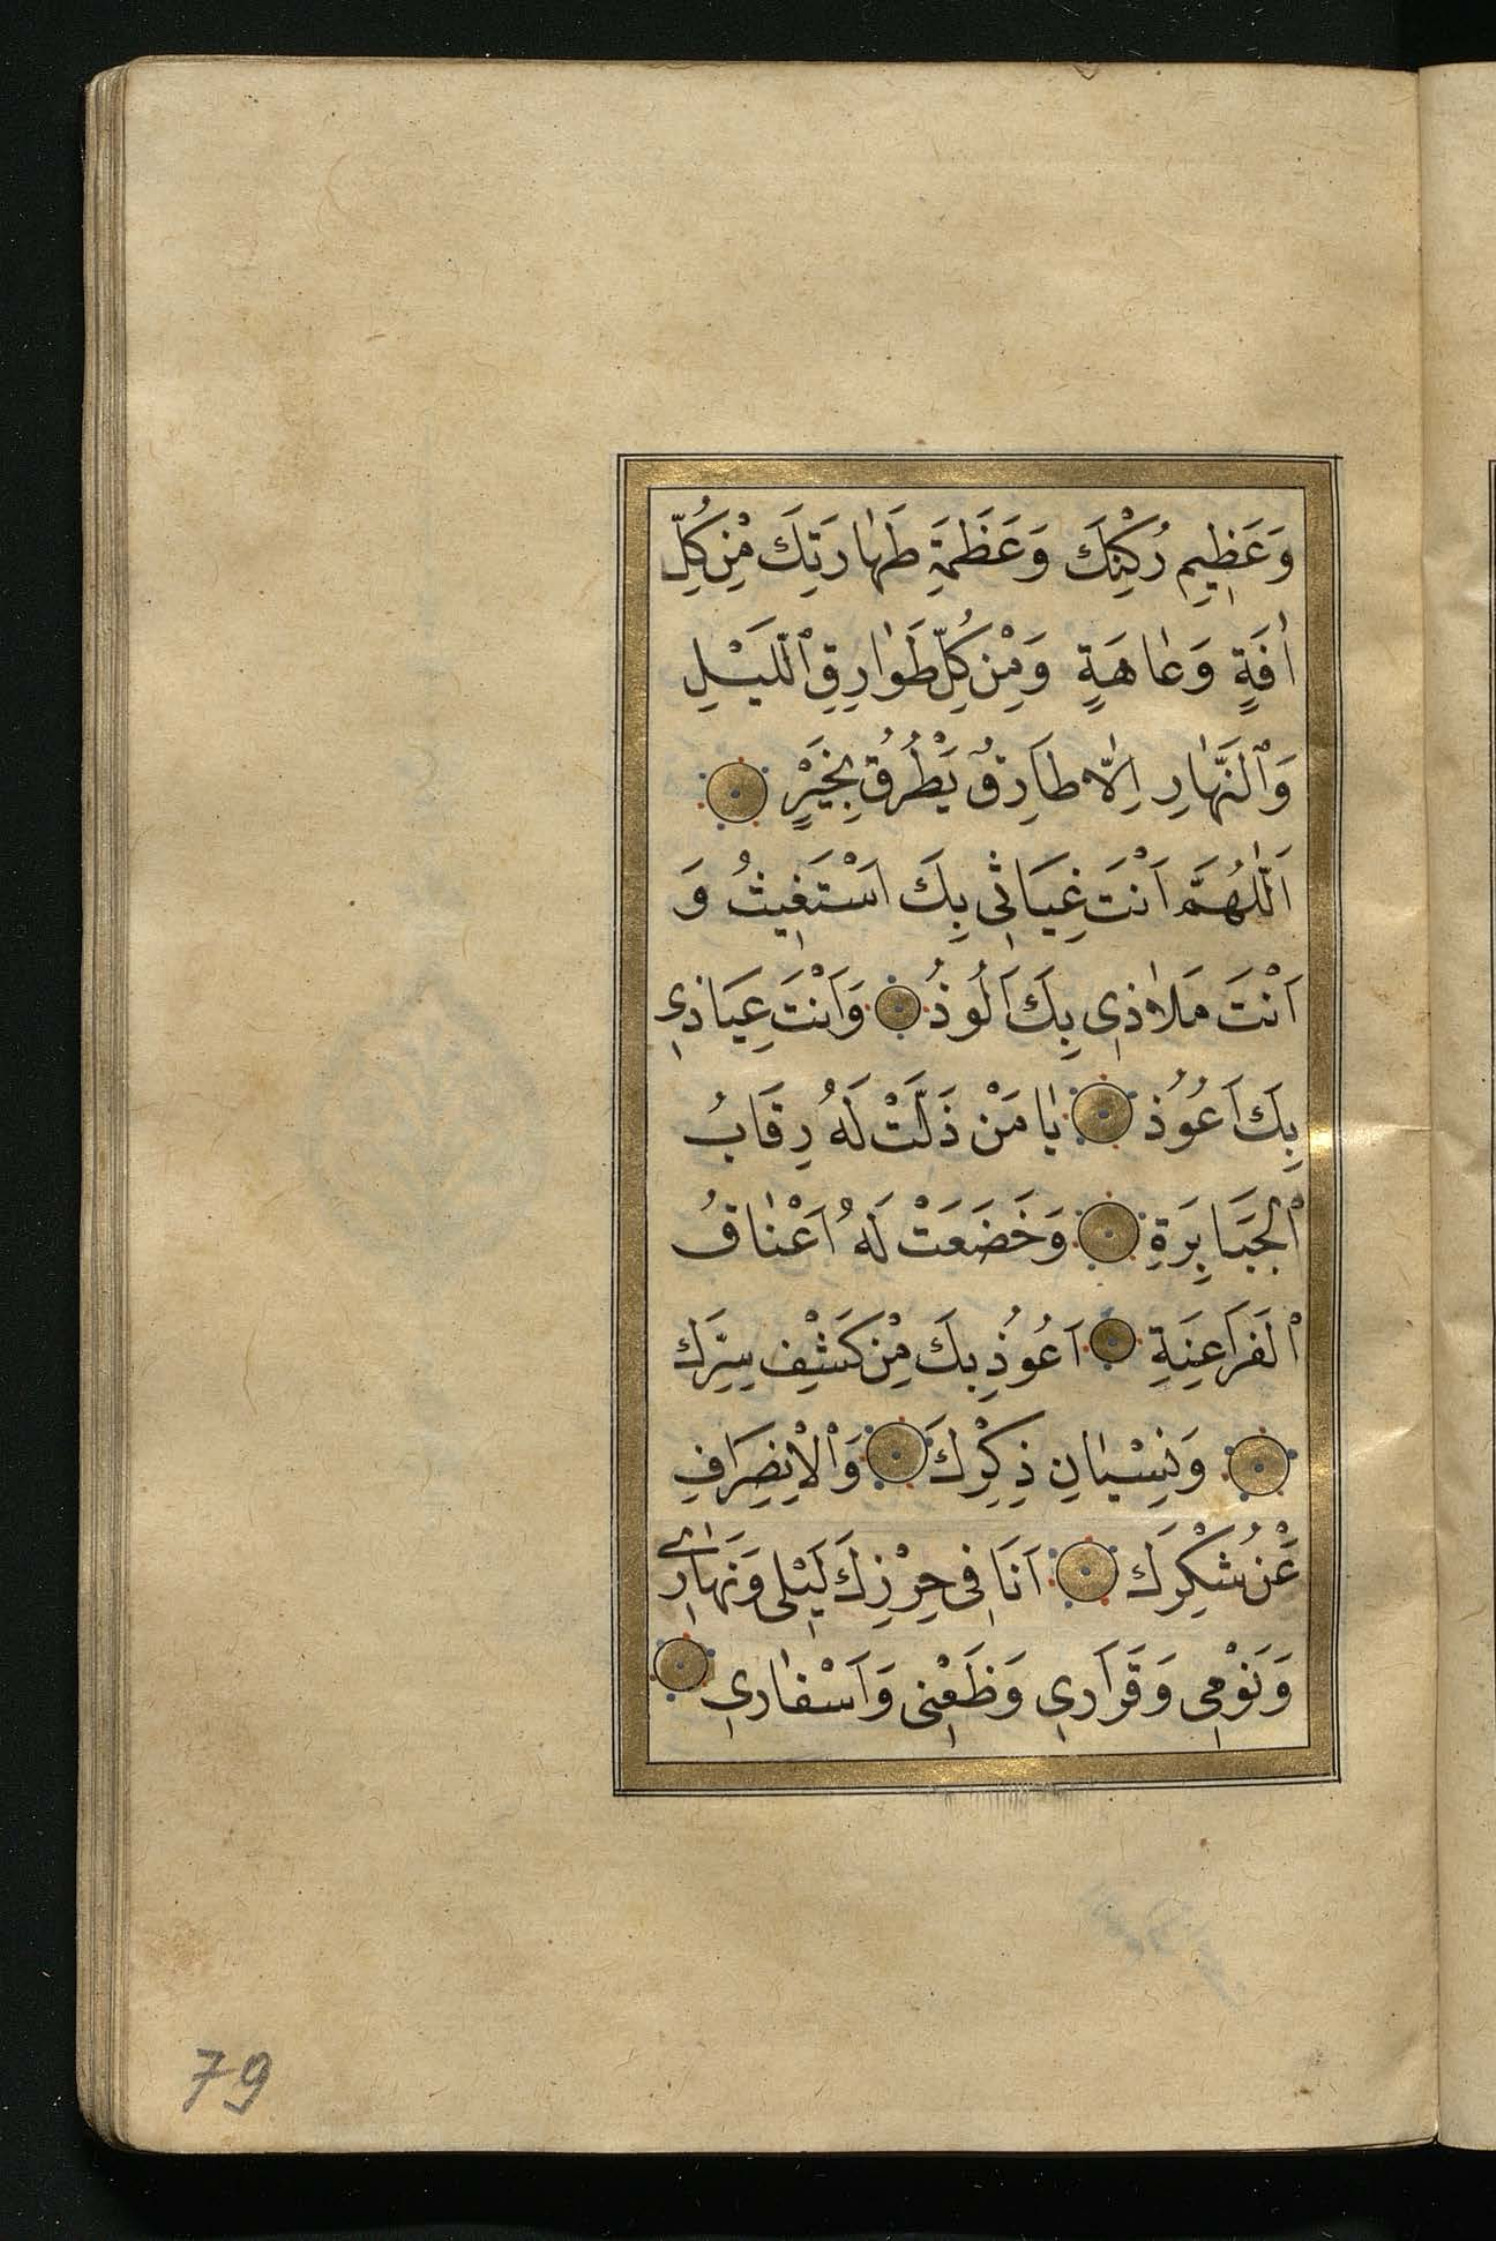 وَعَظِيمِ رُكْنِكَ وَعَظَمَةِ طَهَارَتِكَ مِنْ كُلِّ
اٰفَةٍ وَعَاهَةٍ وَمِنْ كُلِّ طَوَارِقِ ٱللَّيْلِ
وَٱلنَّهَارِ اِلَّا طَارِقٌ يَطْرُقُ بِخَيْرٍ
اَللّٰهُمَّ اَنْتَ غِيَاثِى بِكَ اَسْتَغِيثُ وَ
اَنْتَ مَلَاذِى بِكَ اَلُوذُ وَاَنْتَ عِيَاذِى
بِكَ اَعُوذُ يَا مَنْ ذَلَّتْ لَهُ رِقَابُ
ٱلْجَبَابِرَةِ وَخَضَعَتْ لَهُ اَعْنَاقُ
ٱلْفَرَاعِنَةِ اَعُوذُ بِكَ مِنْ كَشْفِ سِتْرِكَ
وَنِسْيَانِ ذِكْرِكَ وَٱلْاِنْصِرَافِ
عَنْ شُكْرِكَ اَنَا فِى حِرْزِكَ لَيْلِى وَنَهَارِى
وَنَوْمِى وَقَرَارِى وَظَعْنِى وَاَسْفَارِى
79